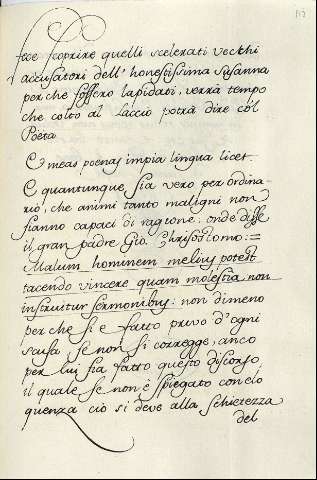 fece scoprire quelli scelerati vecchi
accusatori dell' honestissima Susanna
perche fossero lapidati, verrà tempo
che colto al laccio potrà dire col
Poeta
E meas poenas impia lingua licet.
E quantunque sia vero per ordina-
rio, che animi tanto maligni non
sianno capaci di ragione: onde disse
il gran padre Gio. Chrisostomo:=
Malum hominem melius potest
tacendo vincere quam molestia non
instruitur sermonibus: non dimeno
perche si è fatto privo d'ogni
scusa se non si corregge, anco
per lui sia fatto questo discorso,
il quale se non è spiegato con elo
quenza ciò si deve alla schietezza
del